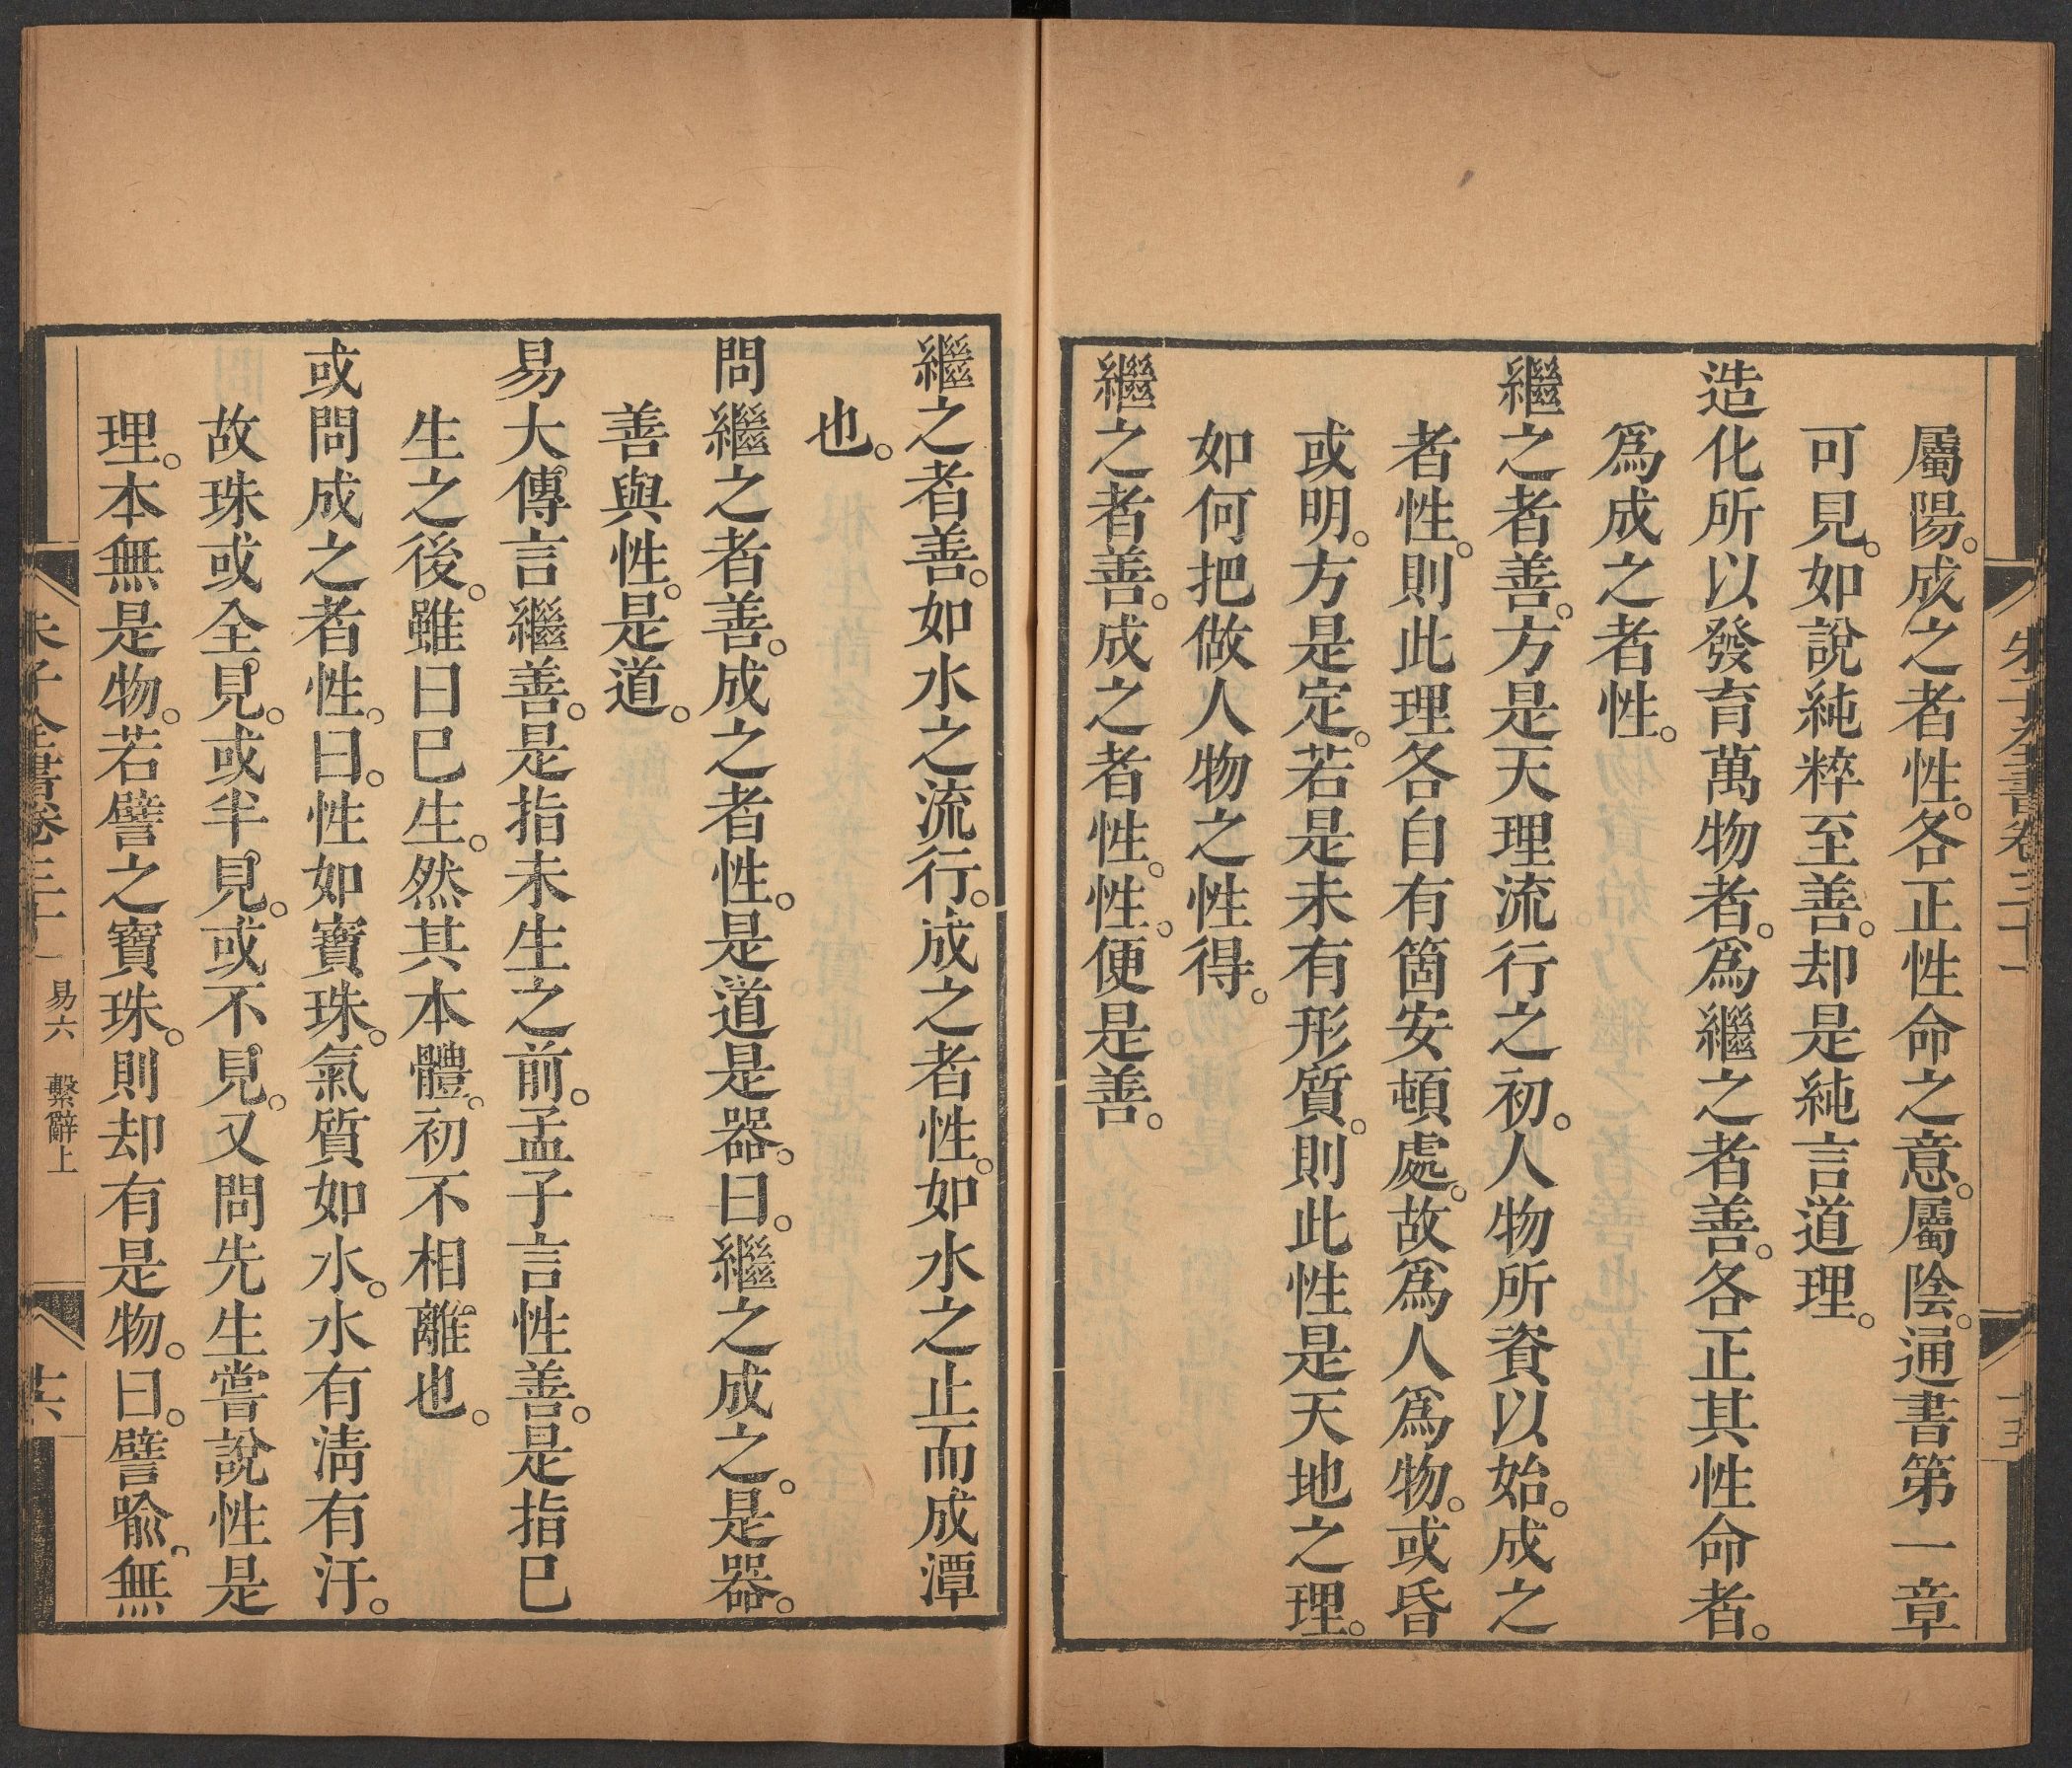 朱子全書卷三十一
十五
屬陽。成之者性。各正性命之意。屬陰。通書第一章
可見。如說純粹至善。却是純言道理。
造化所以發育萬物者。爲繼之者善。各正其性命者。
爲成之者性。
繼之者善。方是天理流行之初。人物所資以始。成之
者性。則此理各自有箇安頓處。故爲人爲物。或昏
或明。方是定。若是未有形質。則此性是天地之理。
如何把做人物之性得。
繼之者善。成之者性。性。便是善。
繼之者善。如水之流行。成之者性。如水之止而成潭
也。
問繼之者善。成之者性。是道是器。曰。繼之成之。是器。
善與性。是道。
易大傳言繼善。是指未生之前。孟子言性善。是指已
生之後。雖曰已生。然其本體。初不相離也。
或問成之者性。曰。性如寶珠。氣質如水。水有淸有汙。
故珠或全見。或半見。或不見。又問先生嘗說性是
理。本無是物。若譬之寶珠。則却有是物。曰。譬喩無
朱子全書卷三十一 易六 繫辭上
十六